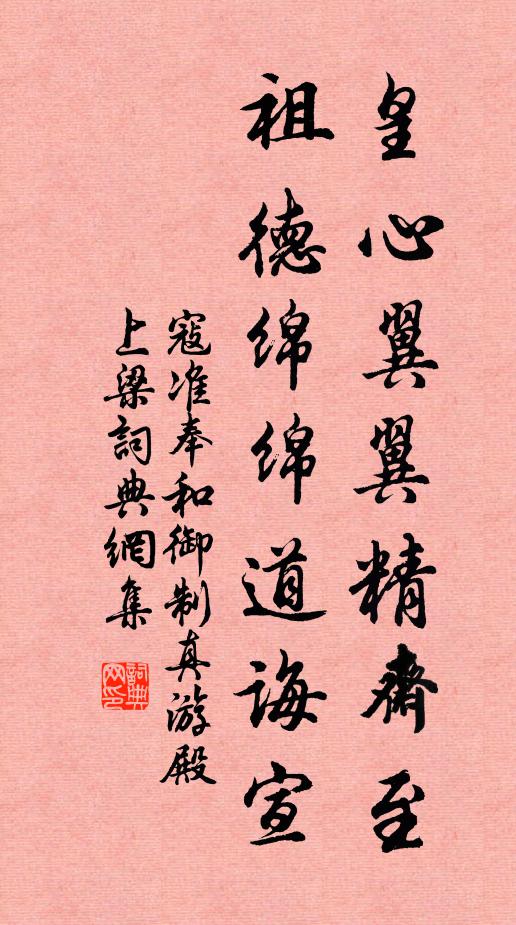 皇心翼翼精齋至
祖德绵绵道诲宣
寇准奉和御制真游殿
上梁詞典網集
詞典
网印